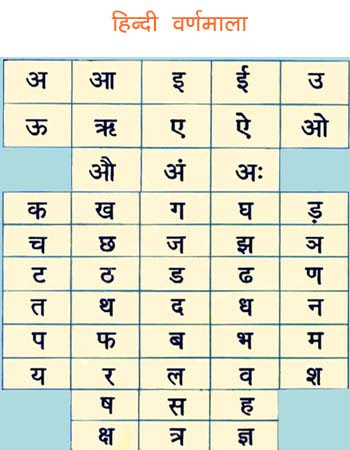 हिन्दी वर्णमाला
अ आ इ ई उ
ऊ ऋ ए ऐ ओ
औ अं अः
क ख ग घ ड़
च छ ज झ ञ
ट ठ ड ढ ण
त थ द ध न
प फ ब भ म
य र ल व श
ष स ह
क्ष त्र ज्ञ